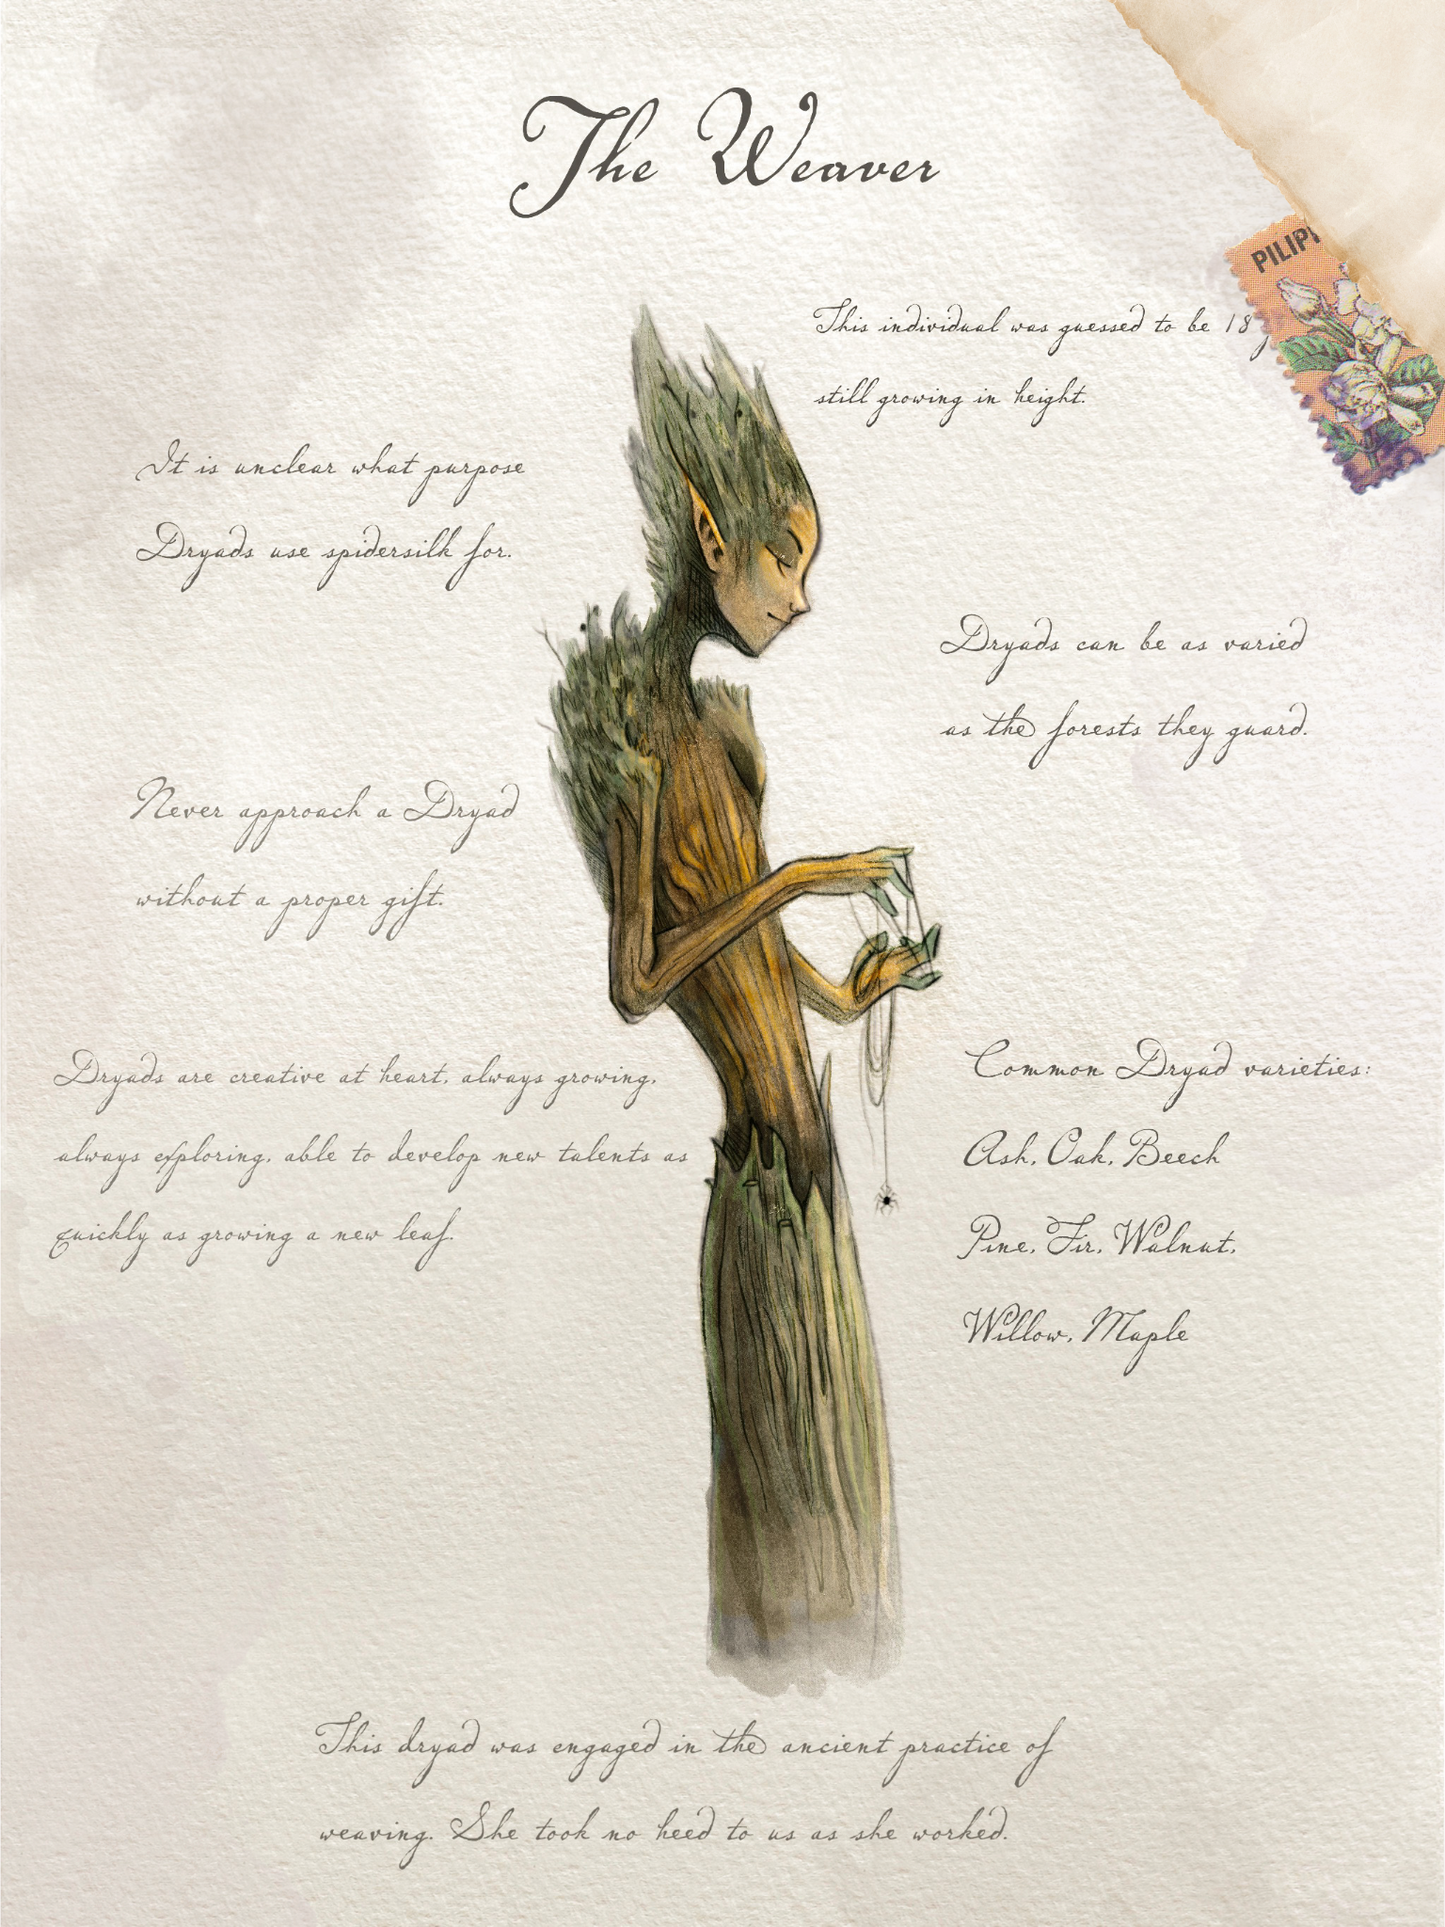 The Weaver
This individual was guessed to be 18
still growing in height.
It is unclear what purpose
Dryads use spidersilk for.
Dryads can be as varied
as the forests they guard.
Never approach a Dryad
without a proper gift.
Dryads are creative at heart, always growing,
always exploring, able to develop new talents as
quickly as growing a new leaf.
Common Dryad varieties:
Ash, Oak, Beech
Pine, Fir, Walnut,
Willow, Maple
This dryad was engaged in the ancient practice of
weaving. She took no heed to us as she worked.
PILIPI